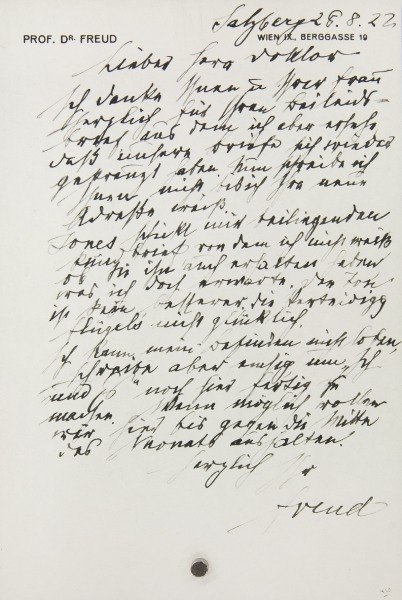 Salzberg 28.8.22
PROF. DR. FREUD
WIEN IX., BERGGASSE 19
Lieber Herr Doktor
Ich danke Ihnen u Ihrer Frau
herzlich für Ihren Beileids-
brief aus dem ich aber ersehe
daß unsere Briefe sich wieder
gekreuzt haben. Nun schreibe ich
Ihnen nicht bis ich Ihre neue
Adresse weiß.
Jones schickt mir beiliegenden
Brief von dem ich nicht weiß
ob Sie ihn auch erhalten haben
was ich doch erwarte. Der Ton
ist kein besserer, die Verteidigg
Flügels nicht glücklich.
Ich kann mein Befinden nicht loben,
schreibe aber emsig um „Ich
und Es" noch hier fertig zu
machen. Wenn möglich wollen
wir hier bis gegen die Mitte
des Monats aushalten.
Herzlich Ihr
Freud